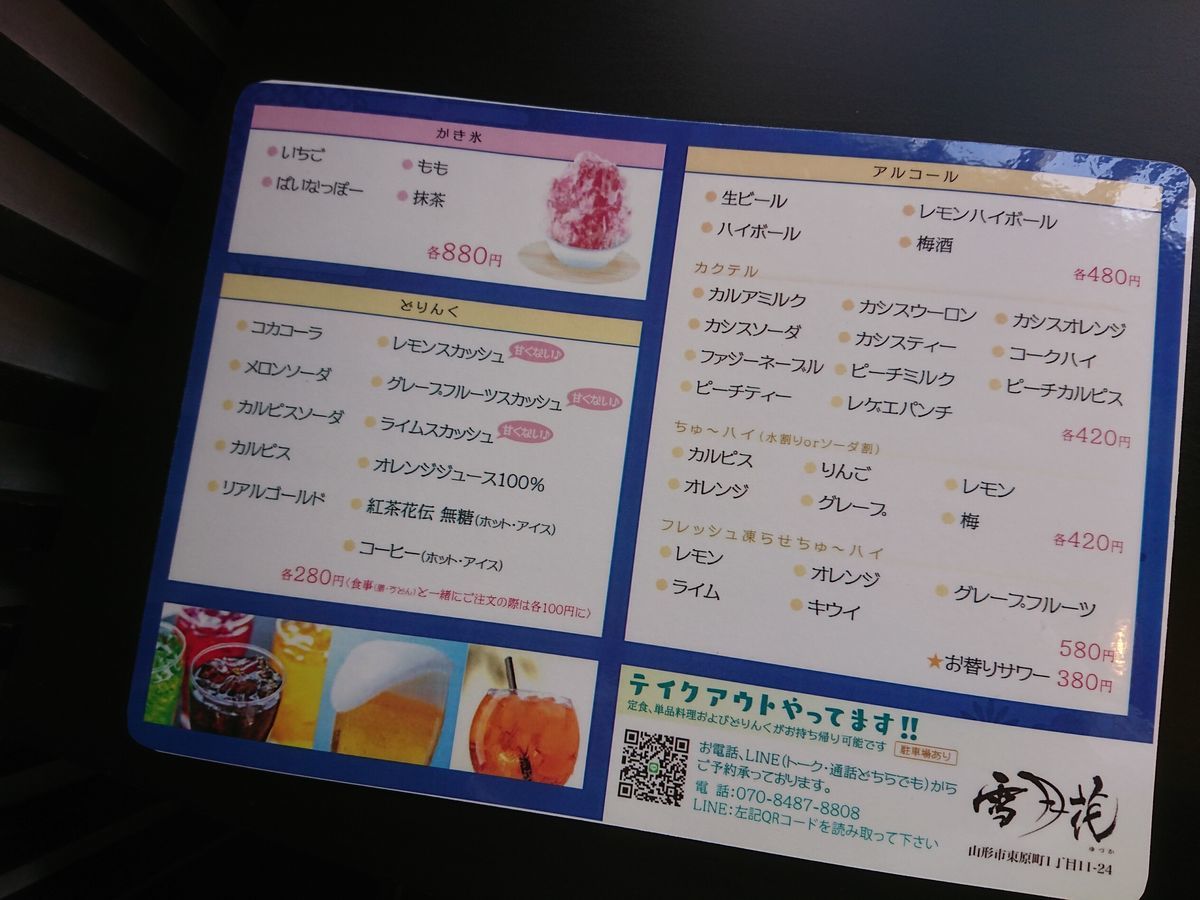 かき氷
いちご
もも
ぱいなっぽー
抹茶
各880円
どりんく
コカコーラ
レモンスカッシュ 甘くない♪
メロンソーダ
グレープフルーツスカッシュ 甘くない♪
カルピスソーダ
ライムスカッシュ 甘くない♪
カルピス
オレンジジュース100%
リアルゴールド
紅茶花伝 無糖(ホット・アイス)
コーヒー(ホット・アイス)
各280円(食事(膳・うどん)と一緒にご注文の際は各100円に)
アルコール
生ビール
レモンハイボール
ハイボール
梅酒
各480円
カクテル
カルアミルク
カシスウーロン
カシスオレンジ
カシスソーダ
カシスティー
コークハイ
ファジーネーブル
ピーチミルク
ピーチカルピス
ピーチティー
レゲエパンチ
各420円
ちゅ〜ハイ(水割りorソーダ割)
カルピス
りんご
レモン
オレンジ
グレープ
梅
各420円
フレッシュ凍らせちゅ〜ハイ
レモン
オレンジ
グレープフルーツ
ライム
キウイ
580円
★お替りサワー 380円
テイクアウトやってます!!
定食、単品料理およびどりんくがお持ち帰り可能です 駐車場あり
お電話、LINE(トーク・通話どちらでも)から
ご予約承っております。
電 話:070-8487-8808
LINE:左記QRコードを読み取って下さい
雪月花
ゆつか
山形市東原町1丁目11-24